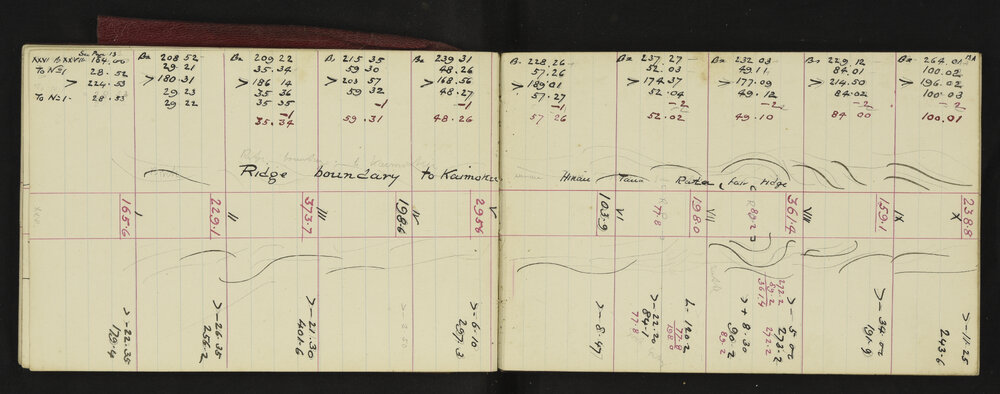 See Page 13
XXVI to XXVII 184.00
To No 1 28.52
> 224.53
To No 1. 28.53
Bs 208 52
29 21
> 180.31
29 23
29 22
Bs 209 22
35.34
> 186 14
35 36
35 35
-1
35.34
B. 215 35
59 30
> 203 57
59 32
-1
59.31
Bs 239 31
48.26
> 168.56
48.27
-1
48.26
B. 228.26
57.26
> 189.01
57.27
-1
57 26
Bs 237.27
52.03
> 174.37
52.04
-2
52.02
Bs 232 03
49.11
> 177.09
49.12
-2
49.10
Bs 229.12
84.01
> 214.50
84.02
-2
84 00
Bs 264.01
100.02
> 196.02
100.03
-2
100.01
13A
Ridge boundary to Kaimoku
Hinau Tawa Rata, fair ridge
165.6
I
229.1
II
373.7
III
198.6
IV
296.6
V
103.9
VI
77.8
198.0
VII
89.2
361.4
VIII
159.1
IX
238.8
X
> -22.35
179.4
> -26.35
256.2
> -21.30
401.6
> -6.10
297.3
> -8.47
> -22.20
84.1
77.8
L-120.2
77.8
198.0
> +8.30
90.2
89.2
272.2
89.2
361.4
> -5.02
273.2
272.2
> -34.02
191.9
> -11.25
243.6